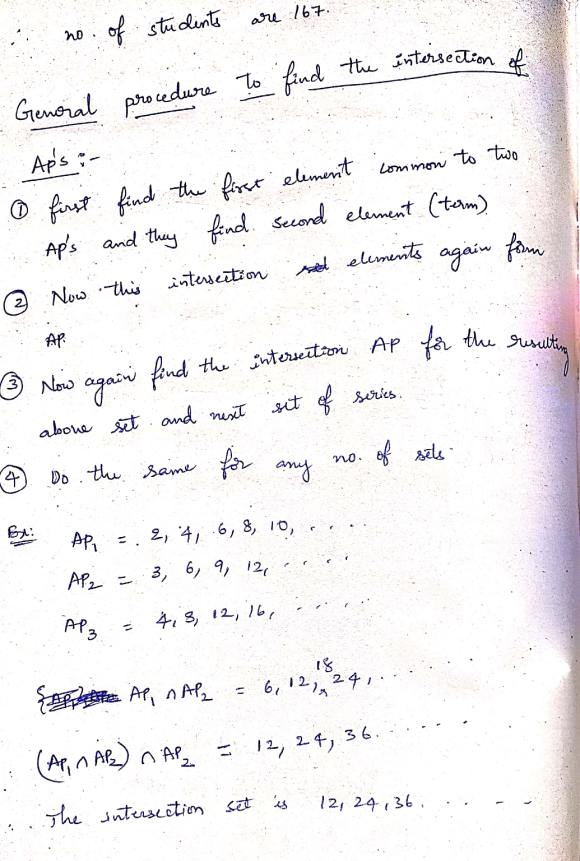 ∴ no. of students are 167.
General procedure to find the intersection of
Ap's :-
① first find the first element common to two
AP's and they find second element (term)
② Now this intersection elements again form
AP.
③ Now again find the intersection AP for the resulting
above set and next set of series.
④ Do the same for any no. of sets.
Ex: AP₁ = 2, 4, 6, 8, 10, ....
AP₂ = 3, 6, 9, 12, ....
AP₃ = 4, 8, 12, 16, ....
AP₁ ∩ AP₂ = 6, 12, 18, 24, ....
(AP₁ ∩ AP₂) ∩ AP₂ = 12, 24, 36. ....
∴ The intersection set is 12, 24, 36. ....